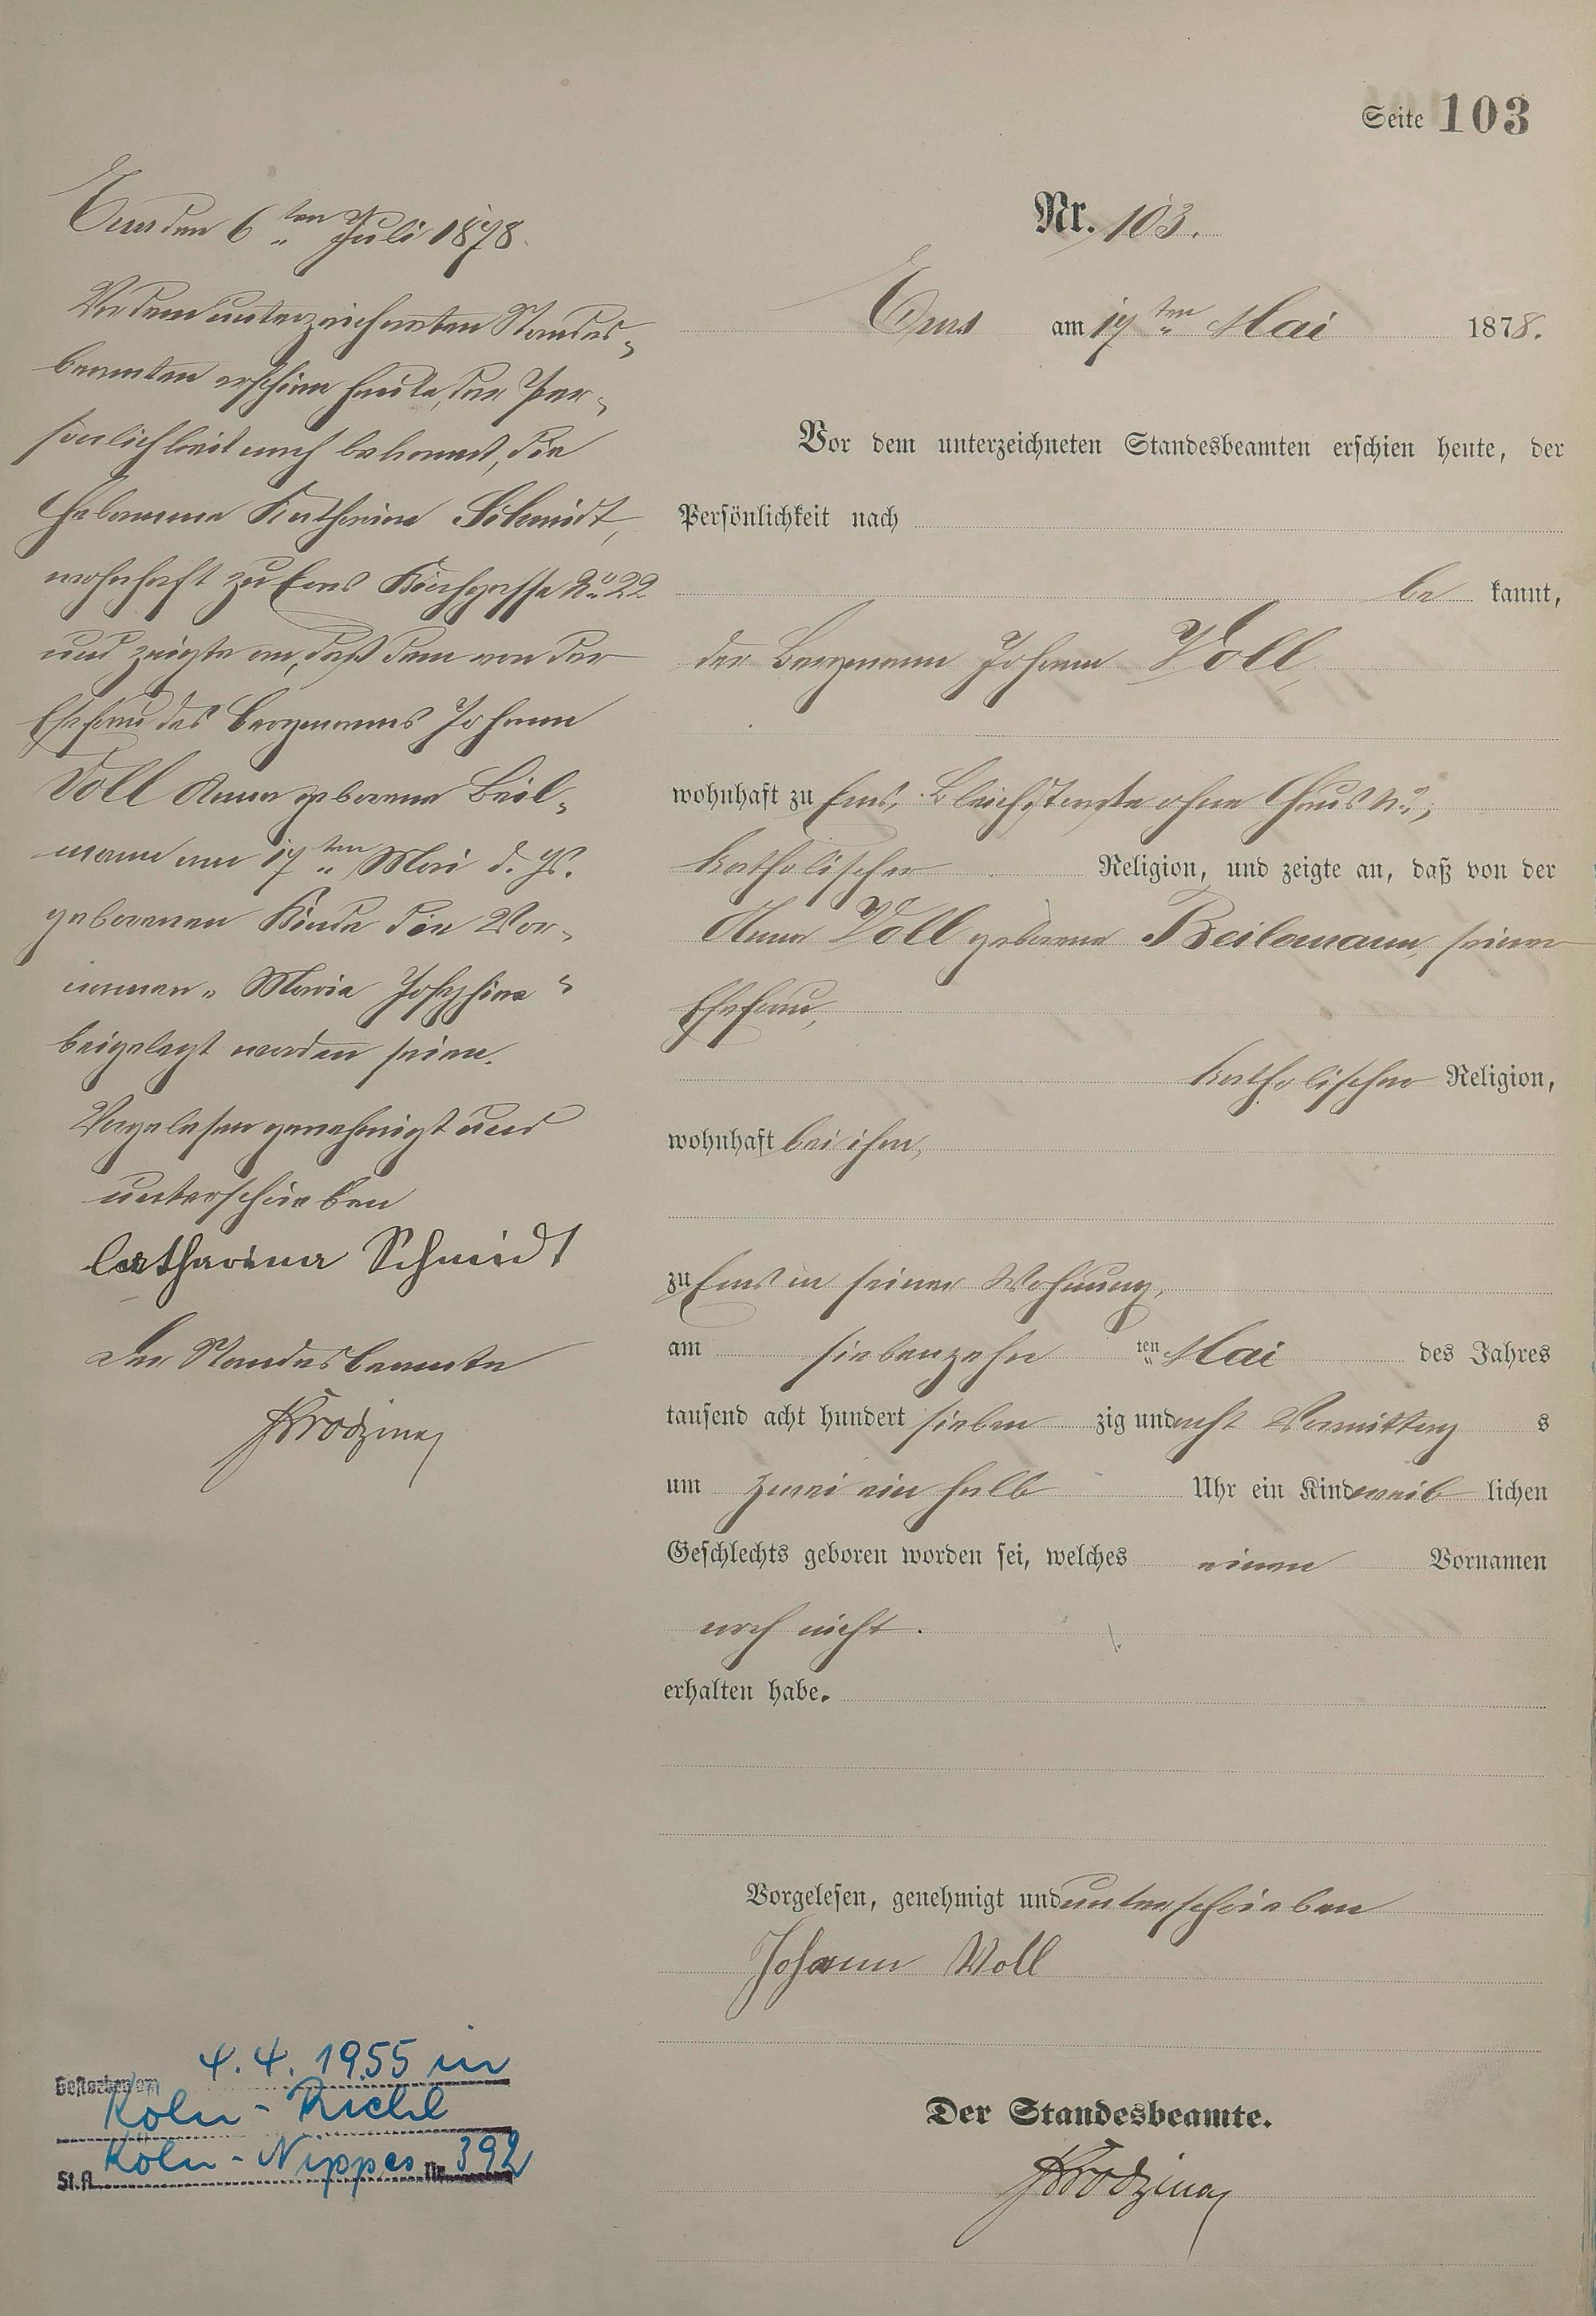 Seite 103
Nr. 103.
Ems am 17ten Mai 1878.
Vor dem unterzeichneten Standesbeamten erschien heute, der
Persönlichkeit nach
be kannt,
der Bergmann Johann Voll,
wohnhaft zu Ems, Bleichstraße ohne Haus No,
katholischer Religion, und zeigte an, daß von der
Anna Voll geborene Beilmann, seiner
Ehefrau,
katholischer Religion,
wohnhaft bei ihm,
zu Ems in seiner Wohnung,
am siebenzehn ten Mai des Jahres
tausend acht hundert sieben zig und acht Vormittag s
um zwei ein halb Uhr ein Kind weib lichen
Geschlechts geboren worden sei, welches einen Vornamen
noch nicht.
erhalten habe.
Vorgelesen, genehmigt und unterschrieben
Johann Voll
Der Standesbeamte.
Ems den 6ten Juli 1878.
Vor dem unterzeichneten Standes-
beamten erschien heute, der Per-
sönlichkeit nach bekannt, die
Hebamme Katharina Schmidt,
wohnhaft zu Ems Kirchgasse No 22
und zeigte an, daß dem von der
Ehefrau des Bergmanns Johann
Voll Anna geborene Beil-
mann am 17ten Mai d. Js.
geborenen Kinde die Vor-
namen "Maria Josephine"
beigelegt worden seien.
Vorgelesen genehmigt und
unterschrieben
Catharina Schmidt
Der Standesbeamte
Gestorben am 4.4.1955 in
Köln-Riehl
St.A. Köln-Nippes Nr. 392